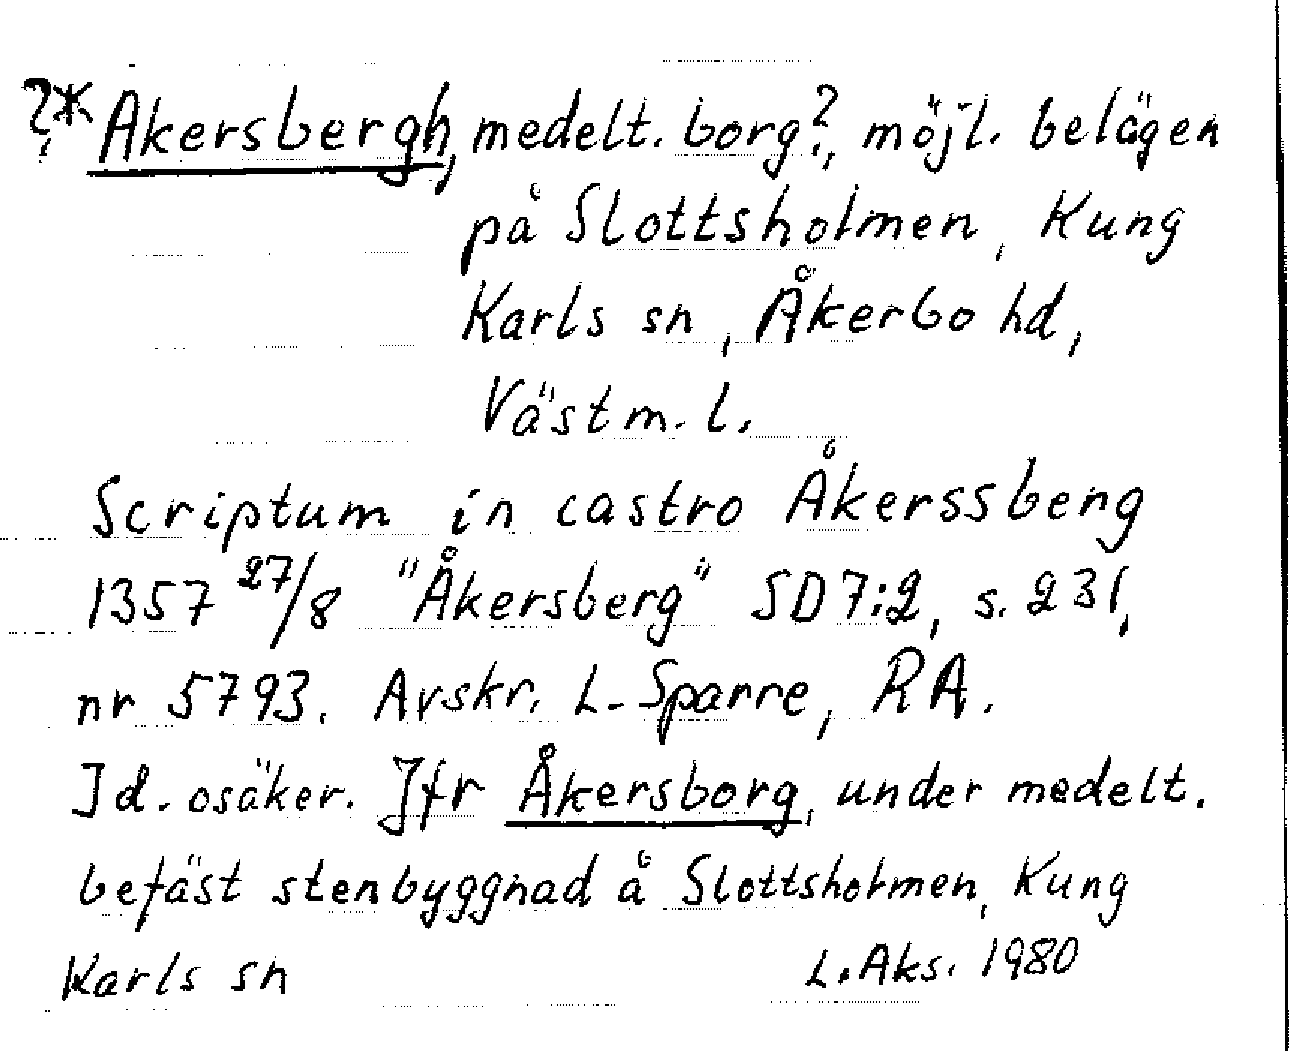 ?* Akersbergh, medelt. borg?, möjl. belägen
på Slottsholmen, Kung
Karls sn, Åkerbo hd,
Västm. l.
Scriptum in castro Åkerssbeng
1357 27/8 "Åkersberg" SD 7:2, s. 231,
nr 5793. Avskr. L. Sparre, RA.
Id. osäker. Jfr Åkersborg, under medelt.
befäst stenbyggnad å Slottsholmen, Kung
Karls sn L. Aks. 1980